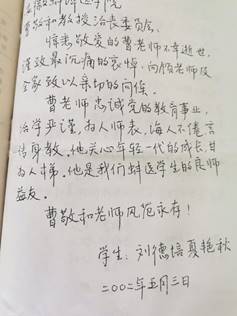 安徽蚌埠医学院
曹敬和教授治丧委员会,
惊悉敬爱的曹老师不幸逝世,
谨致最沉痛的哀悼,向顾老师及
全家致以亲切的问候。
曹老师忠诚党的教育事业,
治学严谨,为人师表,海人不倦,言
传身教。他关心年轻一代的成长,甘
为人梯。他是我们蚌医学生的良师
益友。
曹敬和老师风范永存!
学生:刘德培 夏艳秋
二〇〇二年五月三日